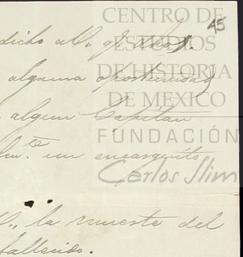 CENTRO DE
ESTUDIOS
DE HISTORIA
DE MÉXICO
FUNDACIÓN
Carlos Slim
45
dicho al
alguna oportunidad
algun Capitan
un encarguito
la muerte del
fallecido.